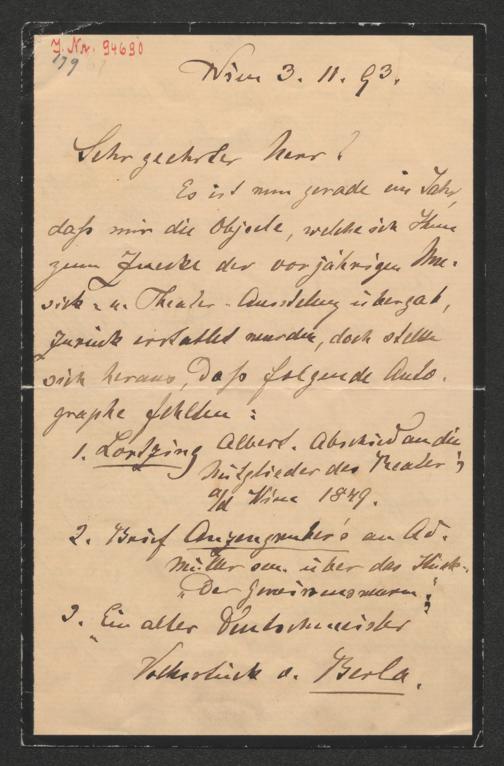 J. Nr. 94690
179
Wien 3. 11. 93.
Sehr geehrter Herr!
Es ist nun gerade ein Jahr,
daß mir die Objecte, welche ich Ihnen
zum Zwecke der vorjährigen Mu-
sick- u. Theater-Ausstellung übergab,
zurück erstattet wurden, doch stellte
sich heraus, daß folgende Auto-
graphe fehlten:
1. Lortzing Albert. Abschied an die
Mitglieder des Theater
a/d Wien 1849.
2. Brief Anzengruber's an Ad.
Müller sen. über das Stück
„Der Gewissenswurm";
3. „Ein alter Deutschmeister
Volksstück v. Berla.